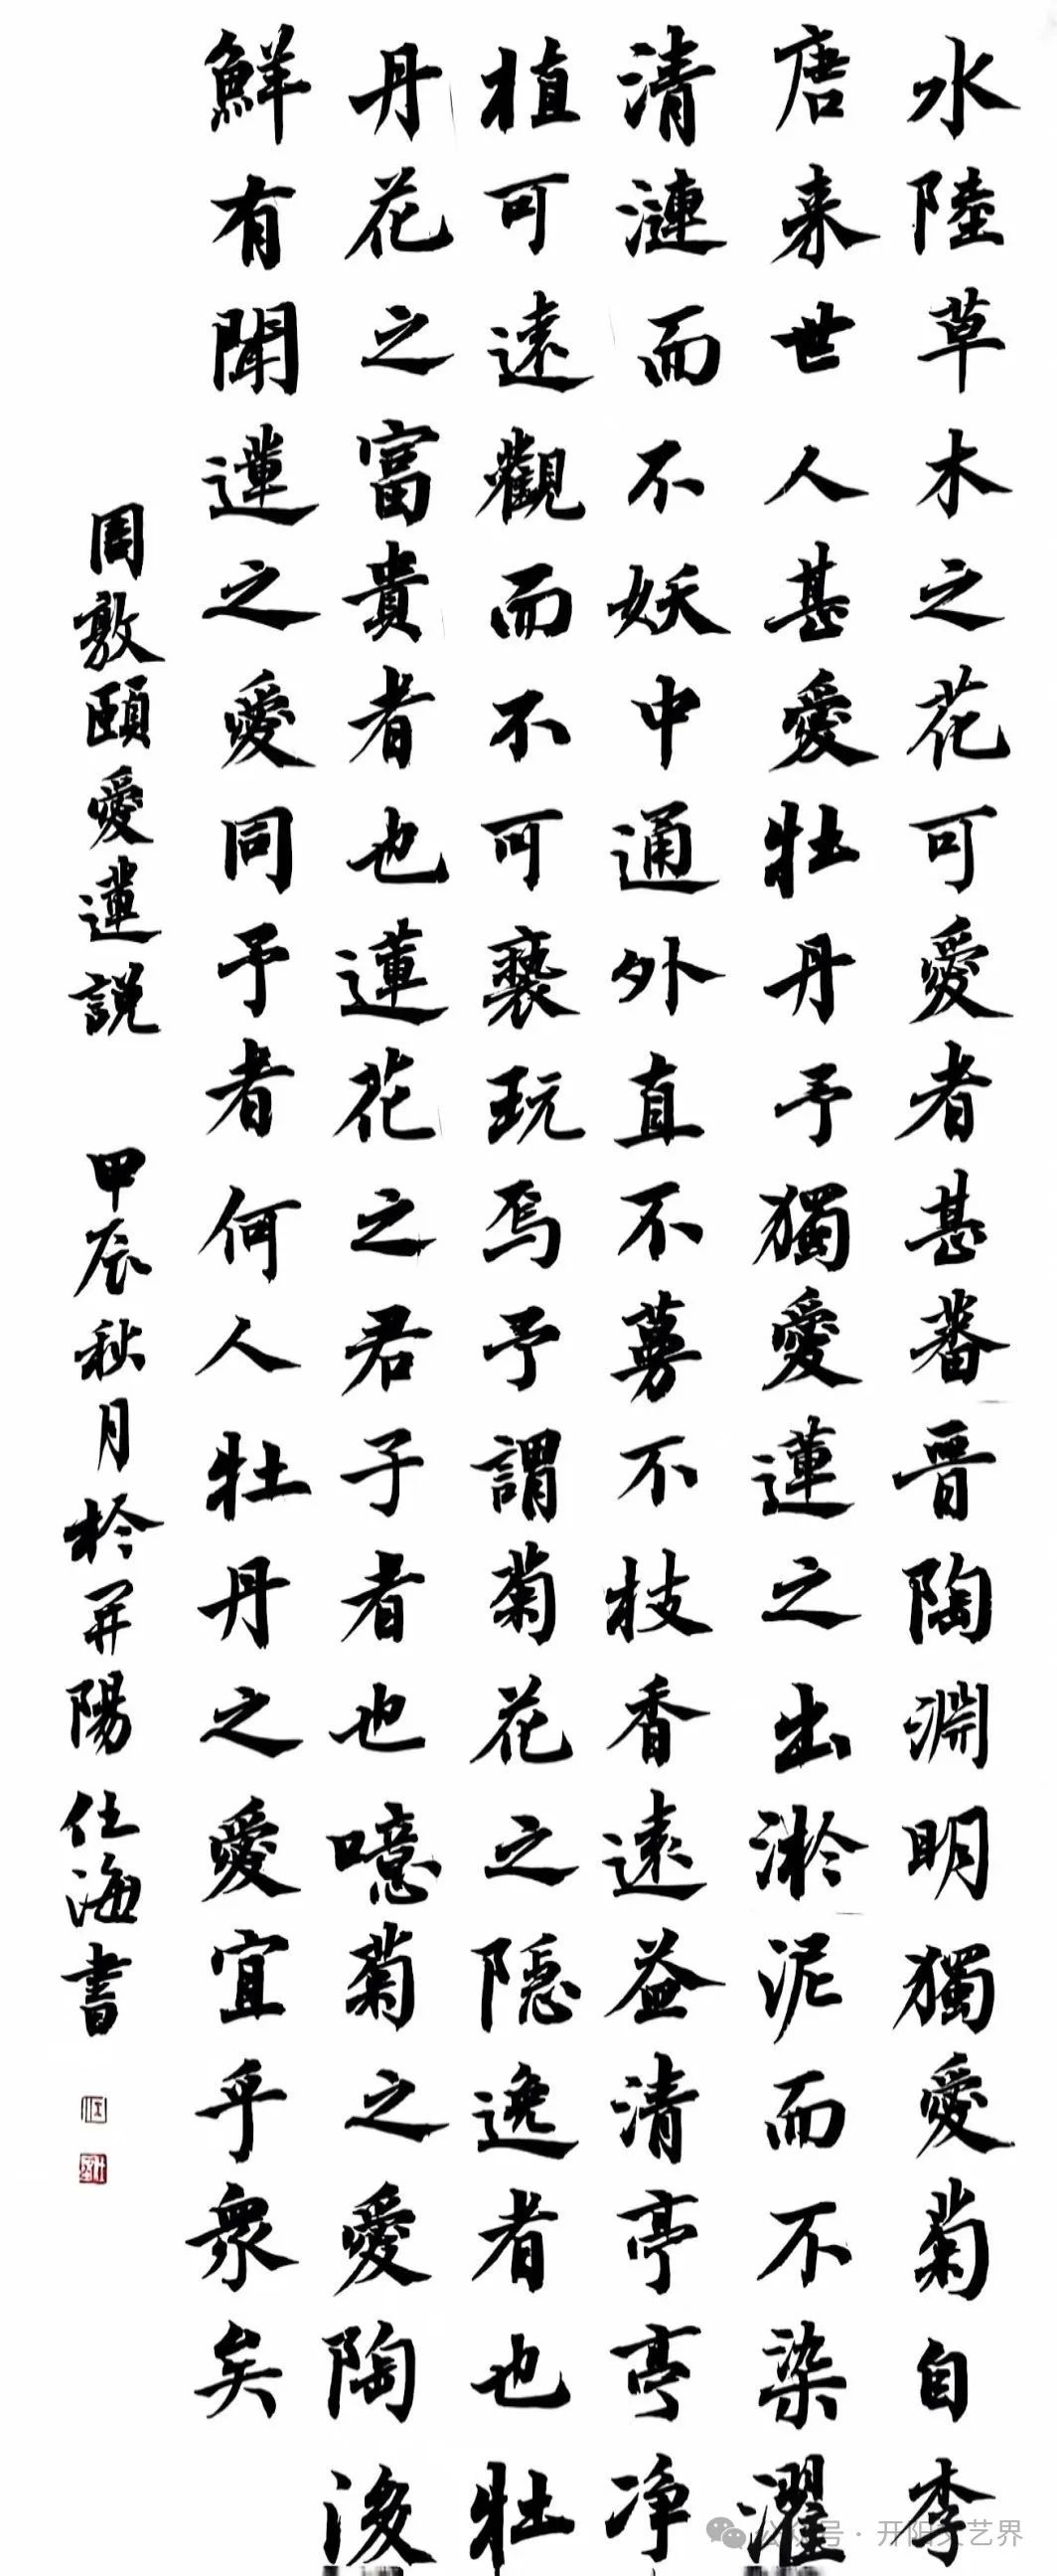 水陸草木之花可愛者甚蕃晋陶淵明獨愛菊自李
唐来世人甚愛牡丹予獨愛蓮之出淤泥而不染濯
清漣而不妖中通外直不蔓不枝香遠益清亭亭净
植可遠觀而不可褻玩焉予謂菊花之隱逸者也牡
丹花之富貴者也蓮花之君子者也噫菊之愛陶後
鮮有聞蓮之愛同予者何人牡丹之愛宜乎衆矣
周敦頤愛蓮説 甲辰秋月於开陽仕海書
公众号·开阳文艺界